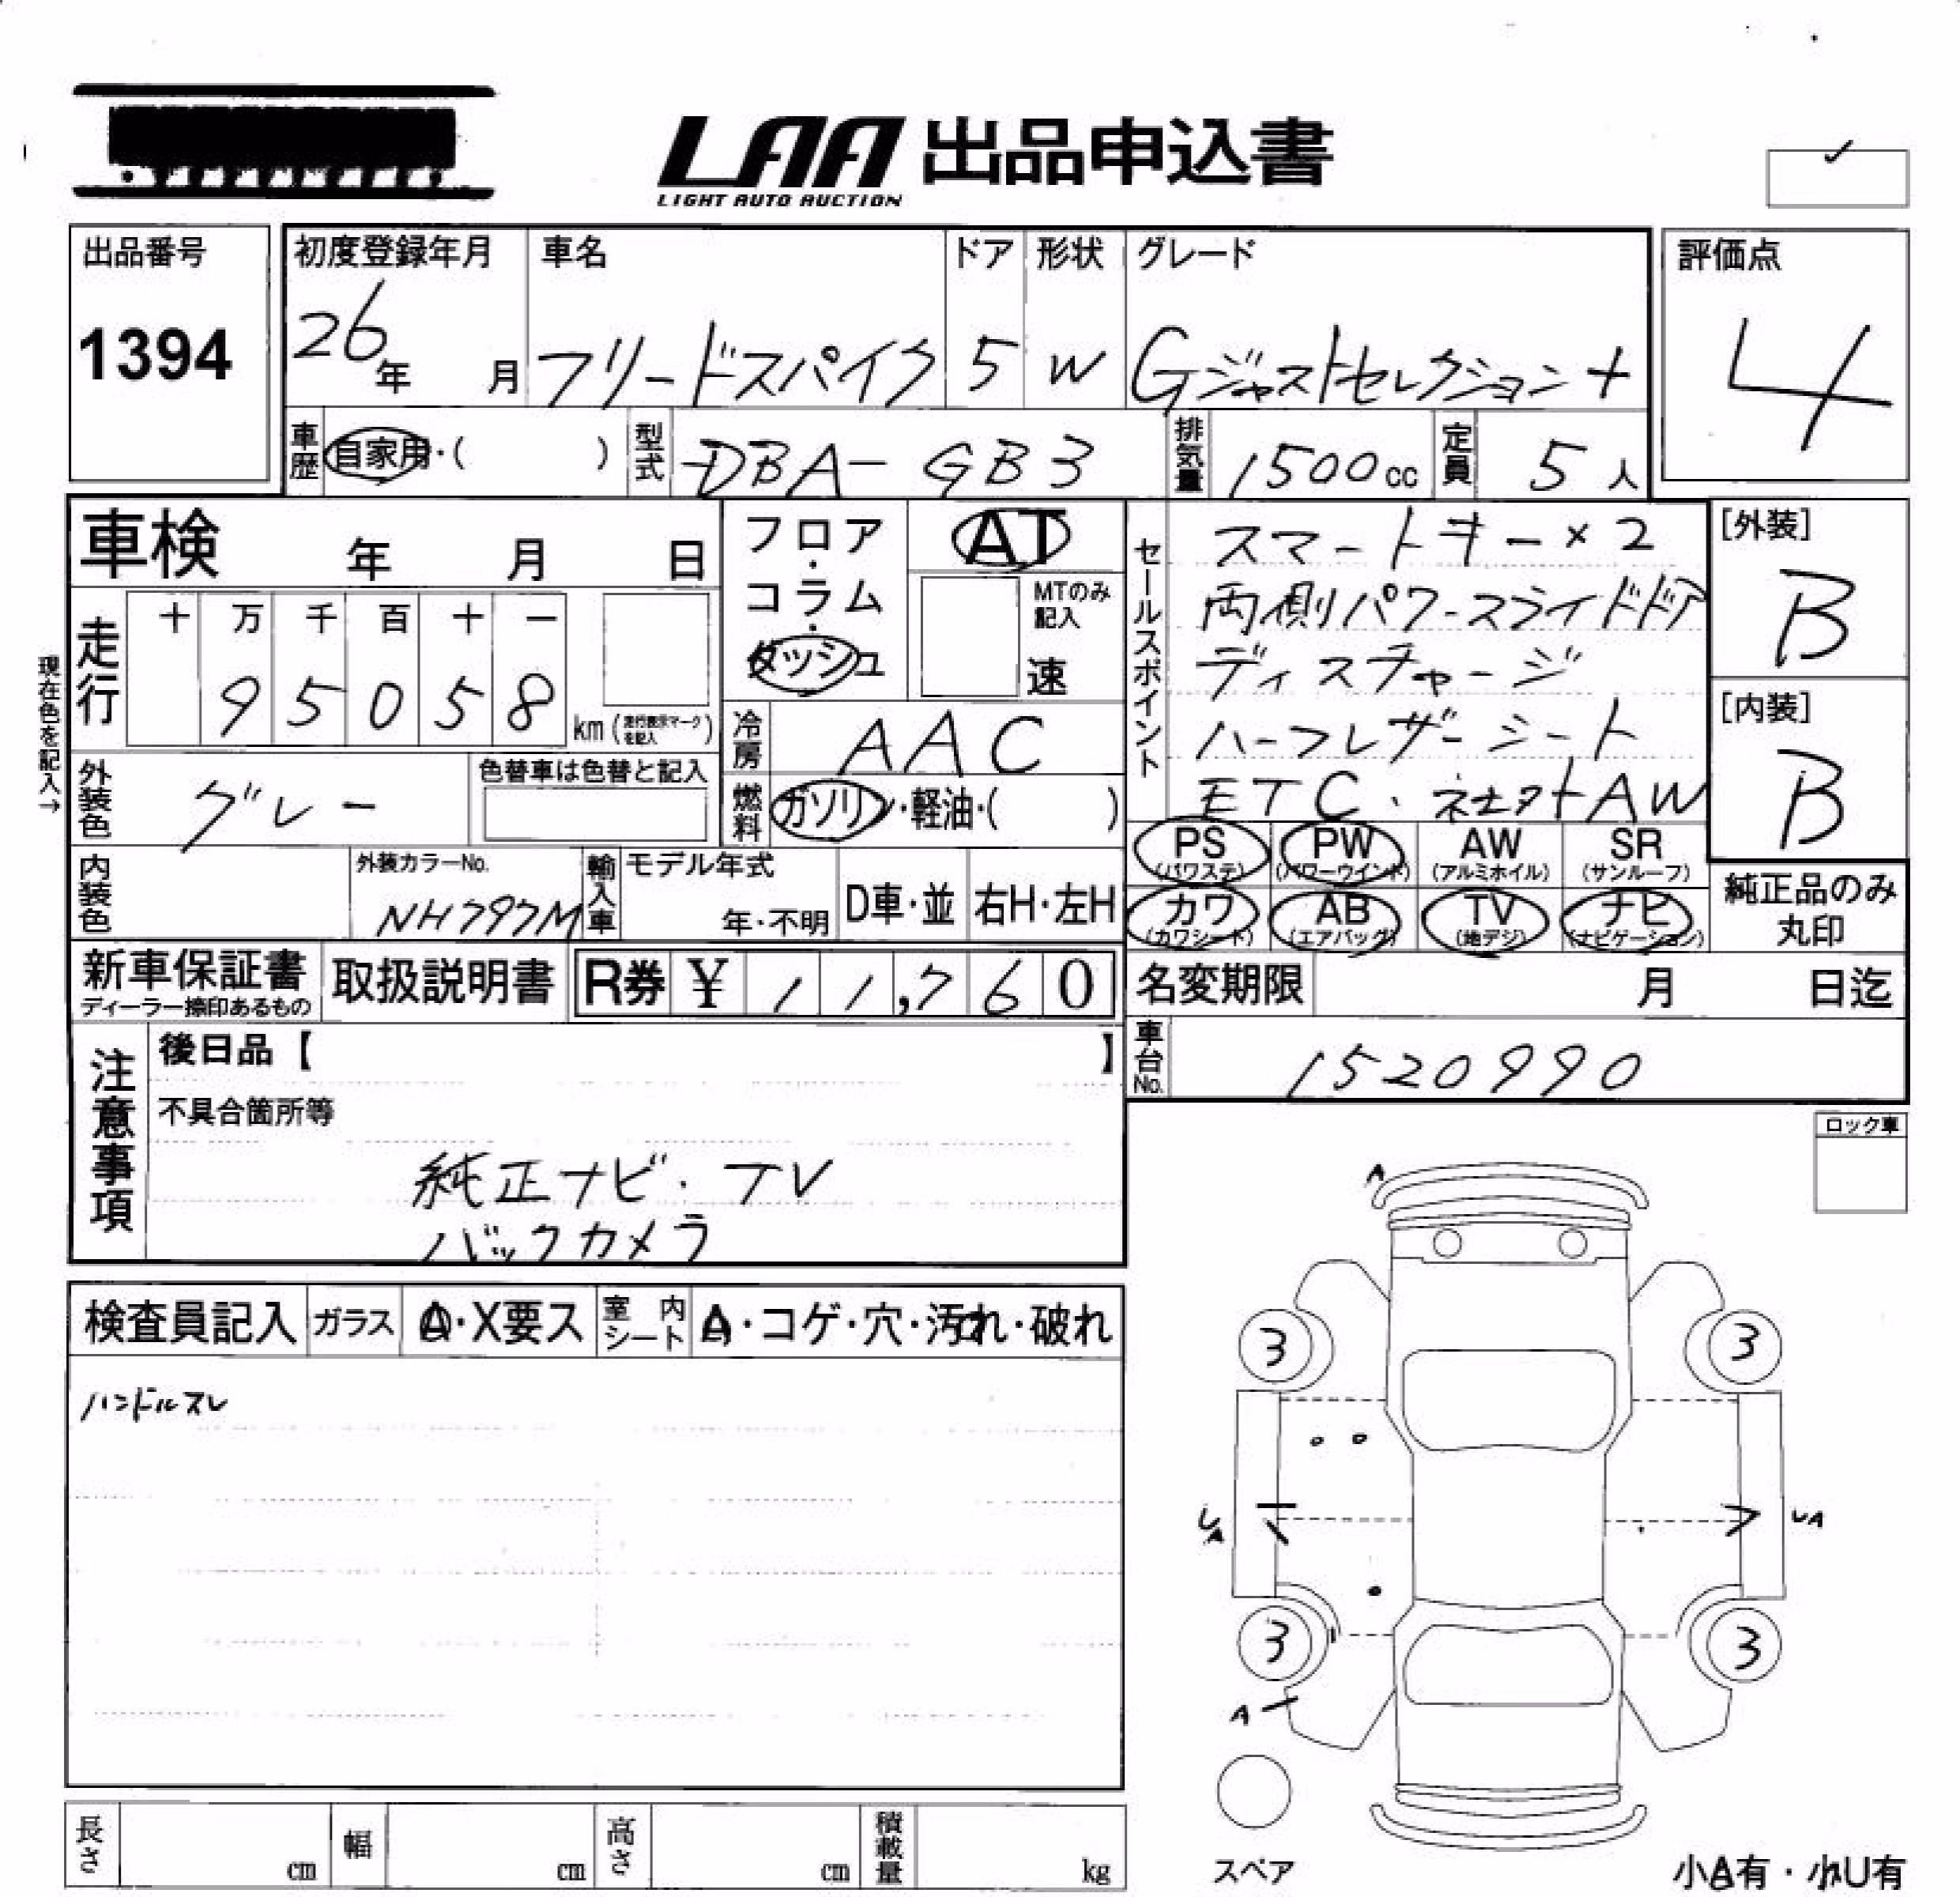 LAA 出品申込書
LIGHT AUTO AUCTION
出品番号
1394
初度登録年月
26年 月
車名
フリードスパイク
ドア
5
形状
W
グレード
Gジャストセレクション+
評価点
4
車歴 自家用・( )
型式 DBA-GB3
排気量 1500cc
定員 5人
車検 年 月 日
フロア・コラム・ダッシュ
AT
MTのみ記入
速
現在色を記入→
走行
十 万 千 百 十 一
9 5 0 5 8 km (走行表示マークを記入)
冷房 AAC
外装色 グレー
色替車は色替と記入
燃料 ガソリン・軽油・( )
内装色
外装カラーNo.
NH797M
輸入車
モデル年式
年・不明
D車・並
右H・左H
セールスポイント
スマートキー×2
両側パワースライドドア
ディスチャージ
ハーフレザーシート
ETC、社外AW
[外装]
B
[内装]
B
PS (パワステ)
PW (パワーウインド)
AW (アルミホイル)
SR (サンルーフ)
カワ (カワシート)
AB (エアバッグ)
TV (地デジ)
ナビ (ナビゲーション)
純正品のみ
丸印
新車保証書
ディーラー捺印あるもの
取扱説明書
R券 ¥ 11,760
名変期限 月 日迄
車台No. 1520990
注意事項
後日品【 】
不具合箇所等
純正ナビ・TV
バックカメラ
ロック車
検査員記入
ガラス
A・X要ス
室内シート
A・コゲ・穴・汚れ・破れ
ハンドルスレ
A
3
3
UA
UA
3
3
A
スペア
長さ cm
幅 cm
高さ cm
積載量 kg
小A有・小U有